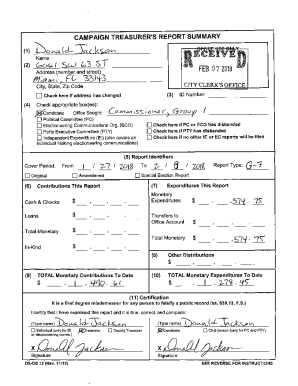 CAMPAIGN TREASURER'S REPORT SUMMARY
(1) Donald Jackson
Name
(2) 6061 SW 63 ST
Address (number and street)
Miami, FL 33143
City, State, Zip Code
Check here if address has changed
OFFICE USE ONLY
RECEIVED
FEB 07 2018
CITY CLERK'S OFFICE
(3) ID Number:
(4) Check appropriate box(es):
Candidate Office Sought: Commissioner, Group 1
Political Committee (PC)
Electioneering Communications Org. (ECO)
Party Executive Committee (PTY)
Independent Expenditure (IE) (also covers an
individual making electioneering communications)
Check here if PC or ECO has disbanded
Check here if PTY has disbanded
Check here if no other IE or EC reports will be filed
(5) Report Identifiers
Cover Period: From 1 / 27 / 2018 To 2 / 8 / 2018 Report Type: G-7
Original Amendment Special Election Report
(6) Contributions This Report
Cash & Checks $
Loans $
Total Monetary $
In-Kind $
(7) Expenditures This Report
Monetary
Expenditures $ 574 . 75
Transfers to
Office Account $
Total Monetary $ 574 . 75
(8) Other Distributions
$
(9) TOTAL Monetary Contributions To Date
$ 1 , 490 . 61
(10) TOTAL Monetary Expenditures To Date
$ 1 , 278 . 45
(11) Certification
It is a first degree misdemeanor for any person to falsify a public record (ss. 839.13, F.S.)
I certify that I have examined this report and it is true, correct, and complete:
(Type name) Donald Jackson
Individual (only for IE or electioneering comm.) Treasurer Deputy Treasurer
X Donald Jackson
Signature
(Type name) Donald Jackson
Candidate Chairperson (only for PC and PTY)
X Donald Jackson
Signature
DS-DE 12 (Rev. 11/13)
SEE REVERSE FOR INSTRUCTIONS